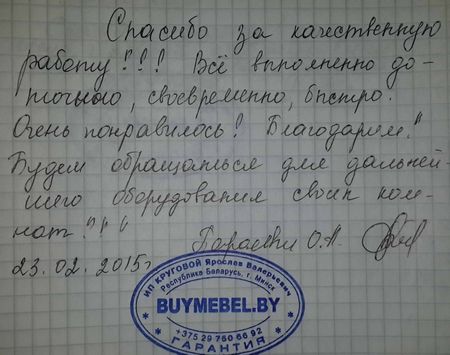 Спасибо за качественную
работу!!! Всё выполненно до-
точново, своевременно, быстро.
Очень понравилось! Благодарим!
Будем обращаться для дальней-
шего оборудования своих ком-
нат!!!
О.А.
23.02.2015г
ИП КРУГОВОЙ Ярослав Валерьевич
Республика Беларусь, г. Минск
BUYMEBEL.BY
+375 29 750 66 92
ГАРАНТИЯ